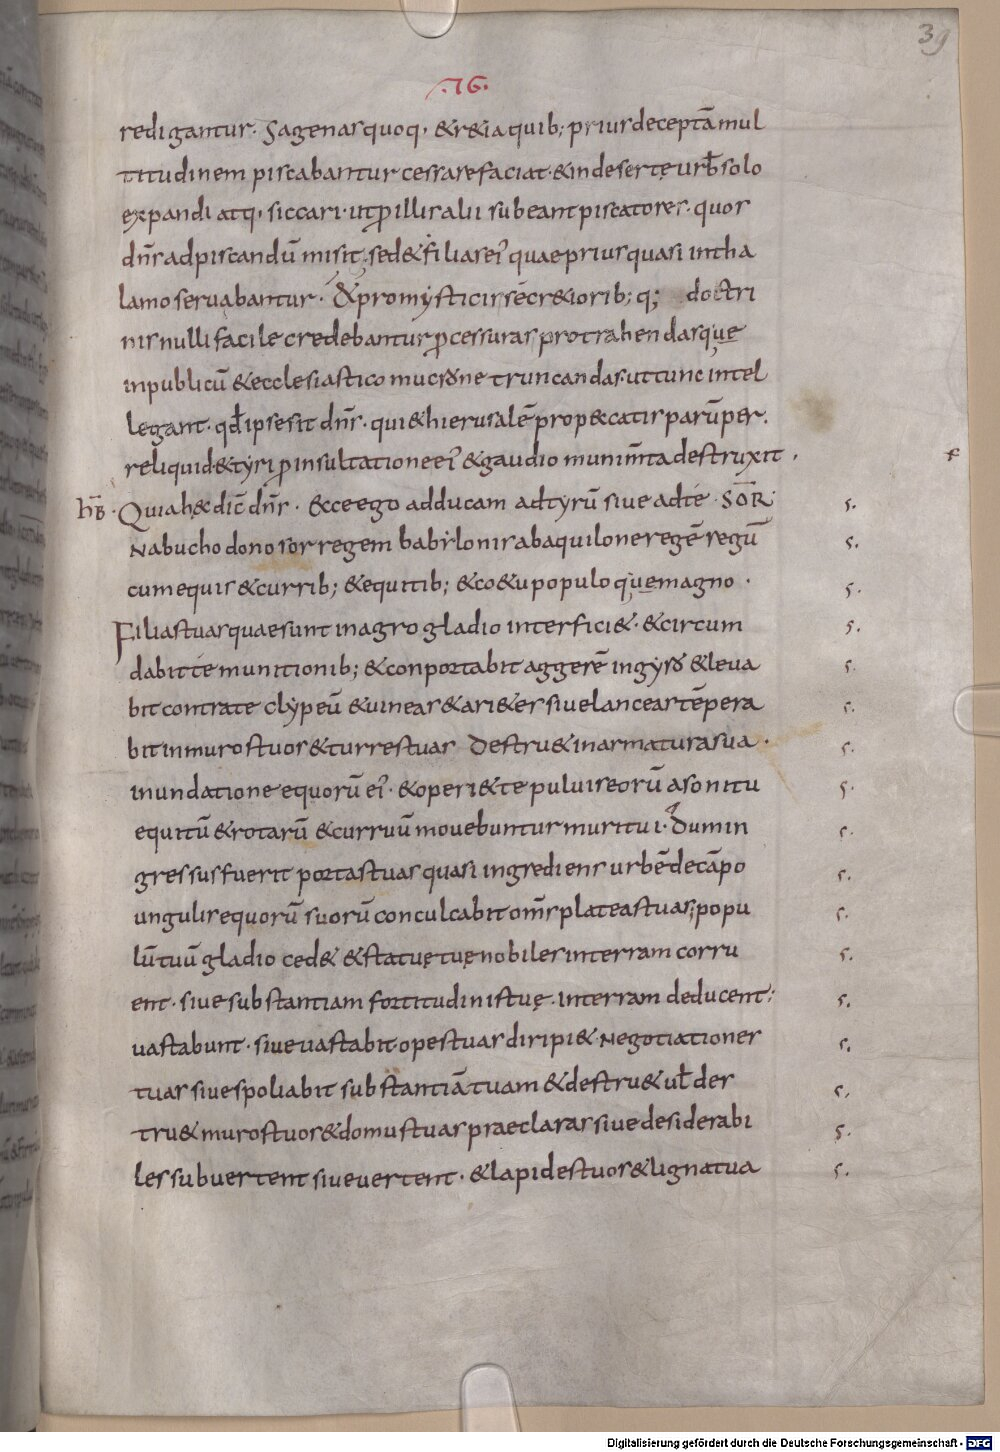 39
.76.
redigantur. Sagenas quoq, & retia quib; prius deceptā mul
titudinem piscabantur cessare faciat. & in desertę urb̄ solo
expandi atq, siccari. ut ꝓ illis alii subeant piscatores. quos
dn̄s ad piscandū misit; sed & filias ei' quae prius quasi in tha
lamo seruabantur. & pro mysticis secretiorib; q; doctri
nis nulli facile credebantur ꝓcessuras protrahendas que
in publicū & ecclesiastico mucrone truncandas. ut tunc intel
legant. qd̄ ipse sit dn̄s. qui & hierusalē pro peccatis parūper.
reliquid & tyri ꝓ insultatione ei' & gaudio munim̄ta destruxit.
hB. Quia hęc dic̄ dn̄s. ecce ego adducam ad tyrū siue ad te. SOR. s.
Nabuchodonosor regem babylonis ab aquilone regē regū s.
cum equis & currib; & equitib; & coetu populo que magno. s.
Filias tuas quae sunt in agro gladio interficiet. & circum s.
dabit te munitionib; & conportabit aggerē in gyro & leua s.
bit contra te clypeū & uineas & arietes siue lanceas tēpera s.
bit in muros tuos & turres tuas destruet in armatura sua. s.
inundatione equorū ei'. & operiet te puluis eorū a sonitu s.
equitū & rotarū & curruū mouebuntur muri tui. Dum in s.
gressus fuerit portas tuas quasi ingrediens urbē de cāpo s.
ungulis equorū suorū conculcabit om̄s plateas tuas; popu s.
lū tuū gladio cedet & statuę tuę nobiles in terram corru s.
ent. siue substantiam fortitudinis tuę. in terram deducent: s.
uastabunt. siue uastabit opes tuas diripiet. Negotiationes s.
tuas siue spoliabit substantiā tuam & destruet ul̄ des s.
truet muros tuos & domus tuas praeclaras siue desiderabi s.
les subuertent siue uertent. & lapides tuos & ligna tua s.
Digitalisierung gefördert durch die Deutsche Forschungsgemeinschaft - DFG